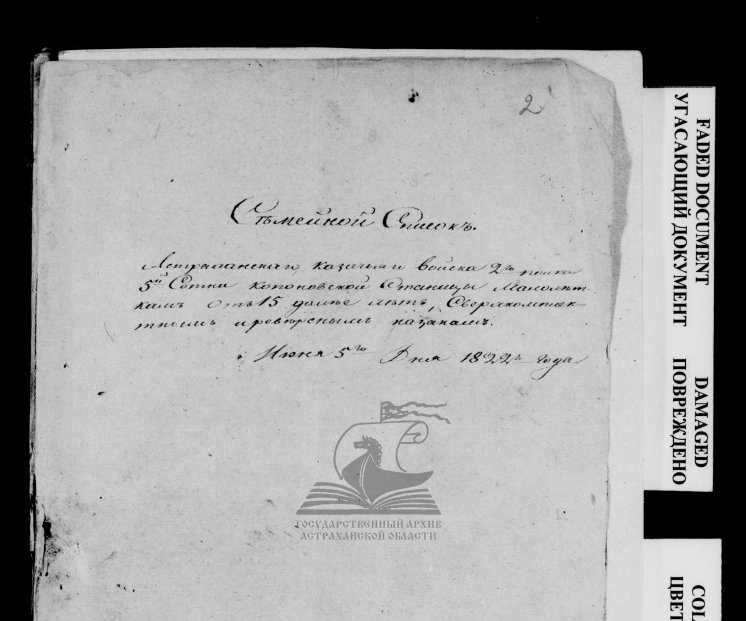 2
Сѣмейной Списокъ.
Астраханскаго казачьяго войска 2го полка
5й Сотни копоновской Станицы Малолѣт-
камъ отъ 15 далѣе лѣтъ, Сверхкомплек-
тнымъ и казакамъ.
Июня 5го Дня 1822го года
ГОСУДАРСТВЕННЫЙ АРХИВ
АСТРАХАНСКОЙ ОБЛАСТИ
FADED DOCUMENT
УГАСАЮЩИЙ ДОКУМЕНТ
DAMAGED
ПОВРЕЖДЕНО
COL
ЦВЕТ